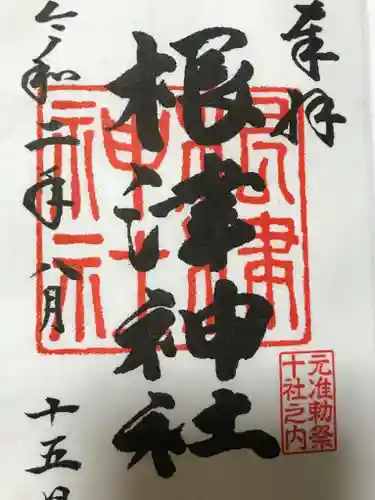 奉拝
根津神社
根津神社
元准勅祭
十社之内
令和二年八月
十五日